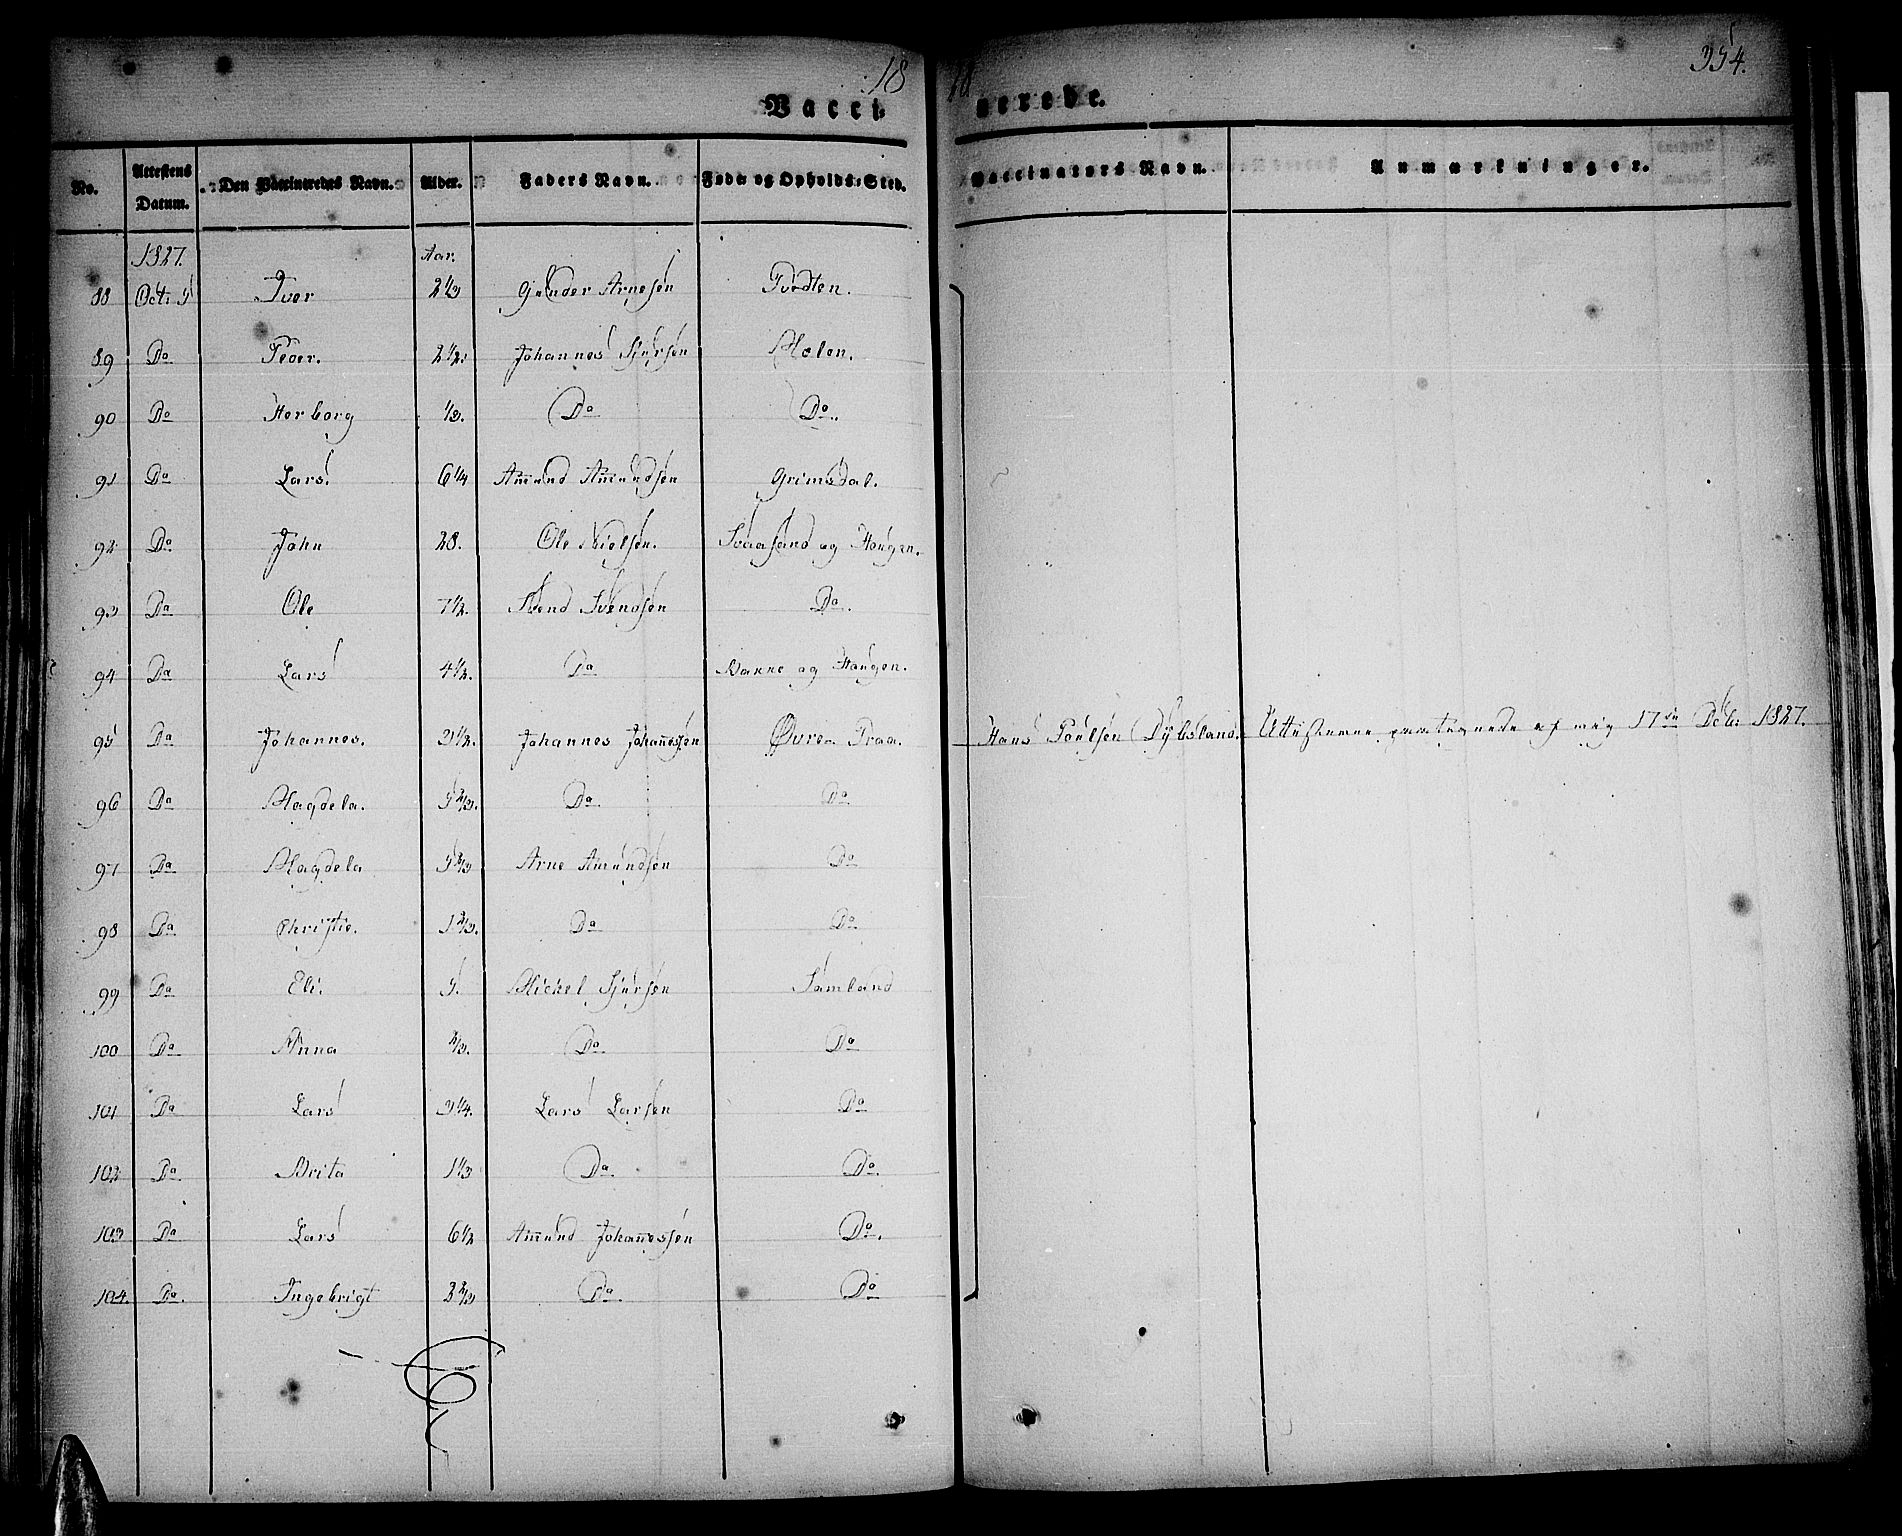 18
354.
Vacci-
nerede.
No. Attestens Datum. Den Vaccineredes Navn. Alder. Faders Navn. Føde og Opholds-Sted. Vaccinators Navn. Anmærkninger.
1827. Aar.
88 Oct: 5 Iver 2 1/3 Gunder Arnesen Tvedten.
89 Do Peder. 2 1/2. Johannes Sjursen Molen.
90 Do Herborg 1/3. Do Do.
91 Do Lars. 6 1/4 Am̄und Am̄undsen Grimsdal.
92 Do John 28. Ole Nielsen. Svaasand og Haugen.
93 Do Ole 7 1/2. Svend Svendsen Do.
94 Do Lars 4 1/2. Do Nanne og Haugen.
95 Do Johannes. 3 1/2. Johannes Johan̄essen Øvre Traa. Hans Poulsen Dybsland. Attesterne modtagne af mig 17de Dec: 1827.
96 Do Magdela. 5 2/3. Do Do
97 Do Magdela 5 2/3 Arne Am̄undsen Do
98 Do Christie. 1 2/3. Do Do
99 Do Eli. 5. Mickel Sjursen Samland
100 Do Anna 2/3. Do Do
101 Do Lars 3 1/4. Lars Larsen Do
102 Do Brita 1 1/3 Do Do.
103 Do Lars 6 1/2 Am̄und Johan̄essen Do.
104. Do. Ingebrigt 3 2/3 Do. Do